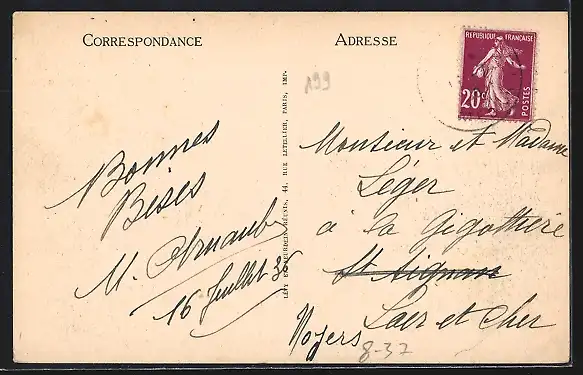 CORRESPONDANCE
ADRESSE
REPUBLIQUE FRANÇAISE
20c
POSTES
199
RUE LETELLIER, PARIS, IMP.
44,
Bonnes
Bises
M. Arnault
16 Juillet 36
Monsieur et Madame
Léger
à la Gigottière
St Aignan
Noyers
Loir et Cher
8-37